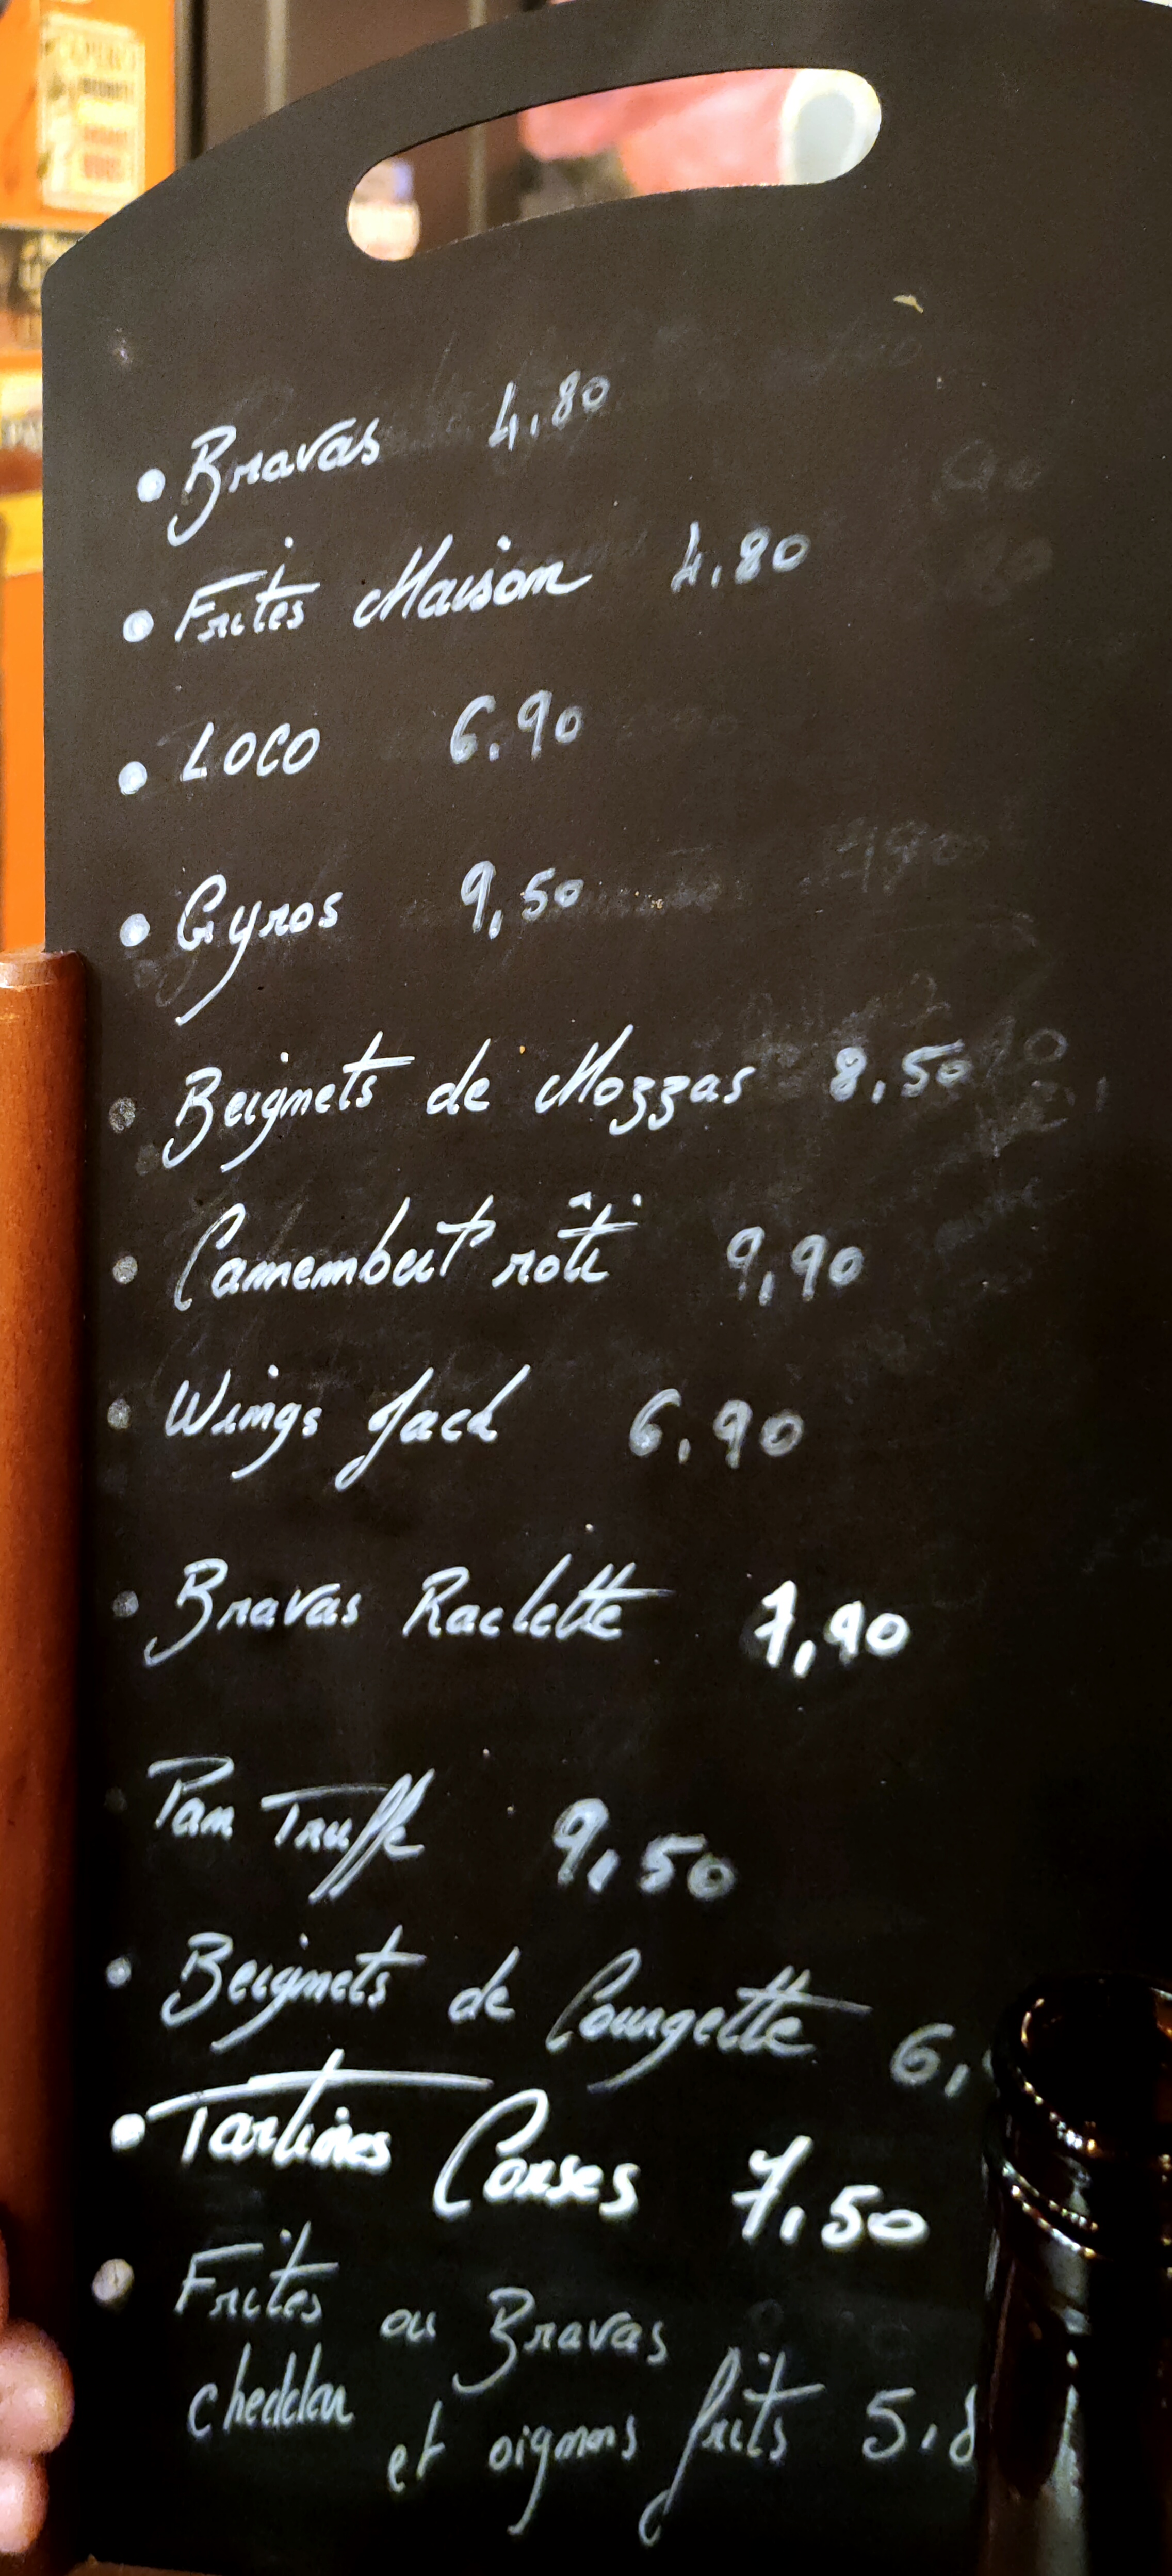 • Bravas 4,80
• Frites Maison 4,80
• LOCO 6.90
• Gyros 9,50
• Beignets de Mozzas 8,50
• Camembert rôti 9,90
• Wings Jack 6,90
• Bravas Raclette 7,90
Pan Truffe 9,50
• Beignets de Courgette 6,
• Tartines Corses 7,50
• Frites ou Bravas
cheddar et oignons frits 5,8